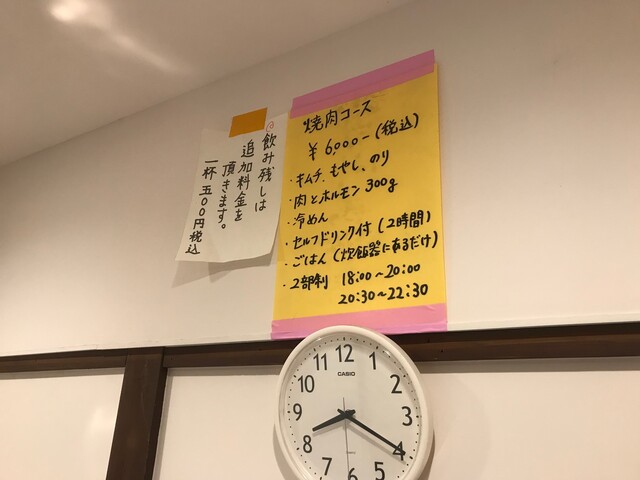 飲み残しは
追加料金を
頂きます。
一杯 五〇〇円税込
焼肉コース
¥6,000-(税込)
・キムチ、もやし、のり
・肉とホルモン 300g
・冷めん
・セルフドリンク付(2時間)
・ごはん(炊飯器にあるだけ)
・2部制 18:00~20:00
20:30~22:30
12
1
2
3
4
5
6
7
8
9
10
11
CASIO